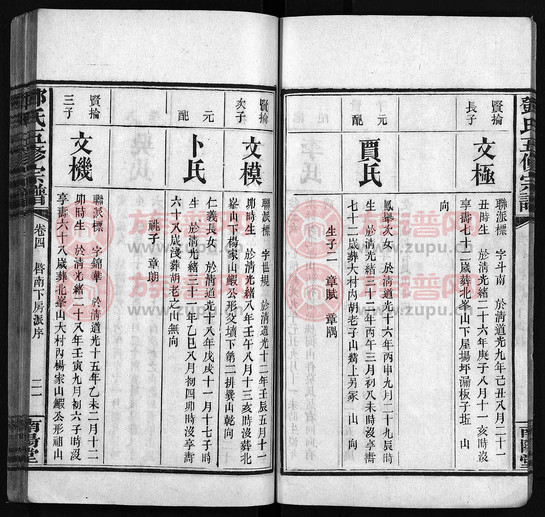 鄧氏五修宗譜
賢掄
長子
文極
聯派標 字斗南 於清道光九年己丑八月二十一
丑時生 於清光緒二十六年庚子八月十一亥時沒
享壽七十二歲葬北峯山下屋場坪漏板子坵 山
向
元
配
賈氏
鳳 次女 於清道光十六年丙申九月二十九辰時
生 於清光緒三十二年丙午三月初八未時沒享壽
七十二歲葬大村內胡老子山嘴上另冢 山 向
生子二 章賦 章隅
南陽堂
賢掄
次子
文模
聯派標 字世規 於清道光十二年壬辰五月十一
卯時生 於清光緒八年壬午八月十三亥時沒葬北
峯山下楊家山蝦公形交墳下第二排糞山乾向
元
配
卜氏
仁義長女 於清道光十八年戊戌十一月十七子時
生 於清光緒三十一年乙巳八月初四卯時沒享壽
六十八歲淺葬胡老之山無向
祧子 章朗
賢掄
三子
文機
聯派標 字錦華 於清道光十五年乙未二月十二
卯時生 於清光緒二十八年壬寅九月初六子時沒
享壽六十八歲葬北峯山大村內楊家山蝦公形祖山
鄧氏五修宗譜
卷四 啓南下房派序
二一
南陽堂
族譜网
www.zupu.cn
族譜网
www.zupu.cn